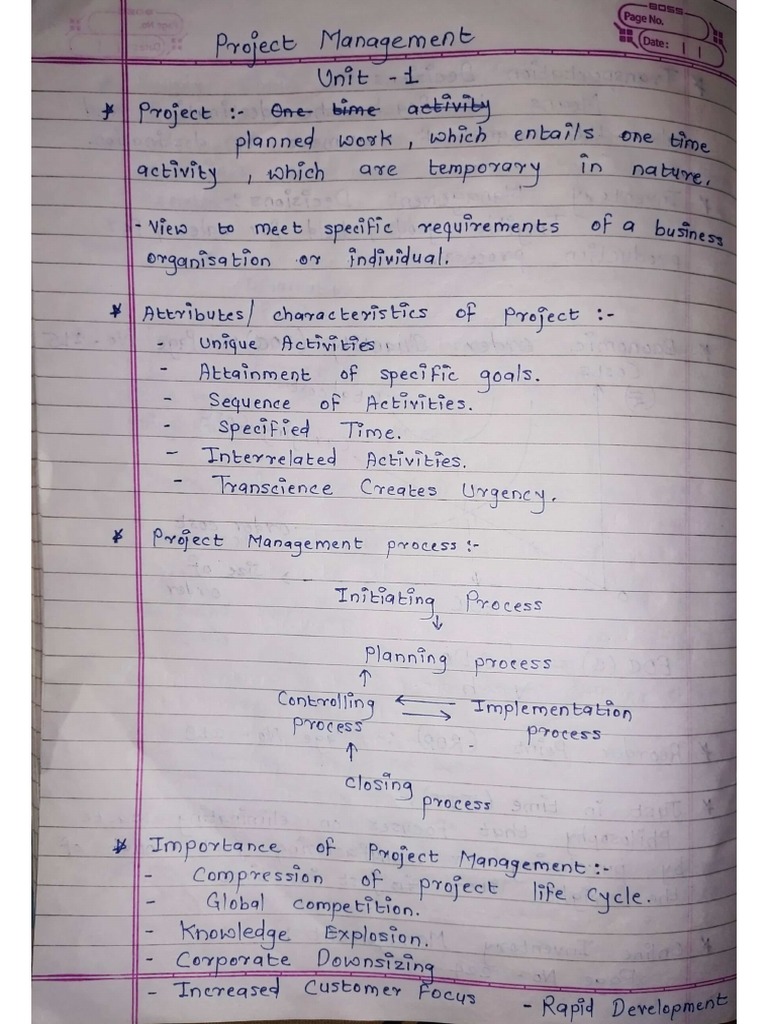 BOSS
Page No.
Date: | |
Project Management
Unit - 1
* Project :- One time activity
planned work, which entails one time
activity, which are temporary in nature.
- View to meet specific requirements of a business
organisation or individual.
* Attributes/ characteristics of Project :-
- Unique Activities.
- Attainment of specific goals.
- Sequence of Activities.
- Specified Time.
- Interrelated Activities.
- Transcience Creates Urgency.
* Project Management process :-
Initiating Process
↓
Planning process
↑
Controlling ← Implementation
process → process
↑
Closing
process
* Importance of Project Management :-
- Compression of project life cycle.
- Global competition.
- Knowledge Explosion.
- Corporate Downsizing
- Increased Customer Focus - Rapid Development